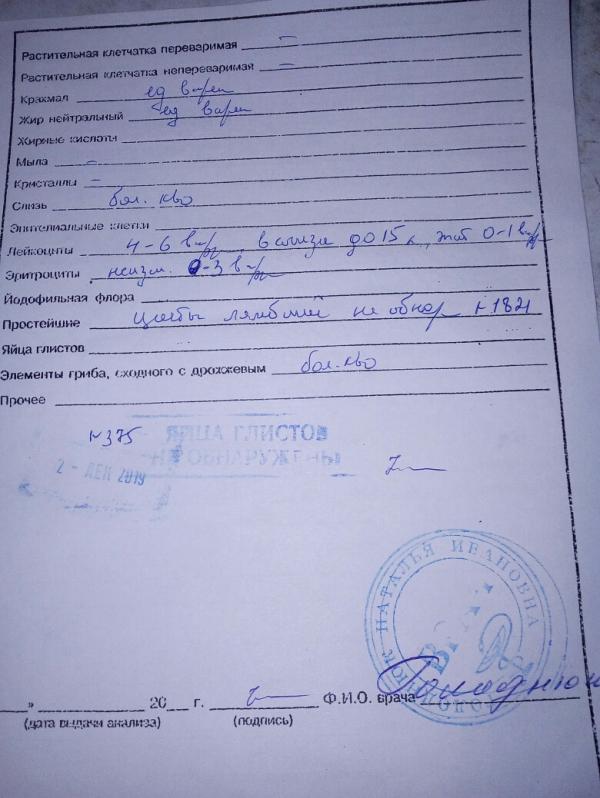 Растительная клетчатка переваримая –
Растительная клетчатка непереваримая –
Крахмал ед в преп
Жир нейтральный ед в преп
Жирные кислоты
Мыла –
Кристаллы –
Слизь бол. кво
Эпителиальные клетки
Лейкоциты 4-6 в п/з, в слизи до 15 к., эоз 0-1 в п/з
Эритроциты неизм. 0-3 в п/з
Йодофильная флора
Простейшие цисты лямблий не обнар N 1821
Яйца глистов
Элементы гриба, сходного с дрожжевым бол. кво
Прочее
N 375 ЯЙЦА ГЛИСТОВ
НЕ ОБНАРУЖЕНЫ
2 - ДЕК 2019
НАТАЛЬЯ ИВАНОВНА
» 20 г. Ф.И.О. врача
(дата выдачи анализа) (подпись)